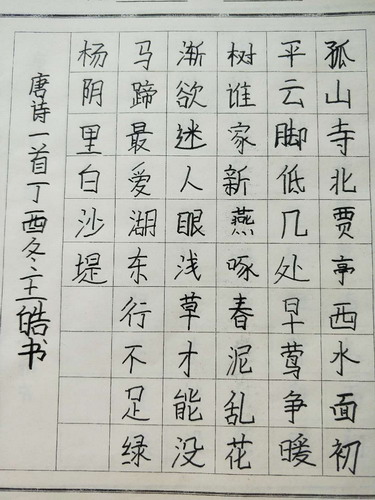 孤山寺北贾亭西水面初
平云脚低几处早莺争暖
树谁家新燕啄春泥乱花
渐欲迷人眼浅草才能没
马蹄最爱湖东行不足绿
杨阴里白沙堤
唐诗一首丁酉冬王皓书